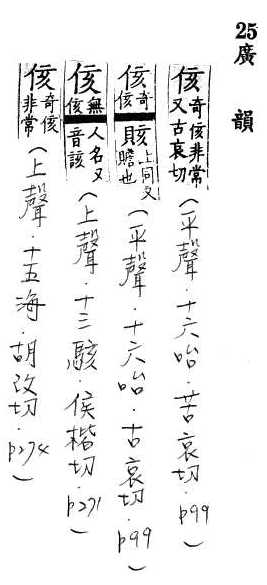 25廣韻
侅奇侅非常又古哀切(平聲.十六咍.苦哀切.p99)
侅奇侅 賅上同又贍也(平聲.十六咍.古哀切.p99)
侅無侅人名又音該(上聲.十三駭.侯楷切.p271)
侅奇侅非常(上聲.十五海.胡改切.p274)